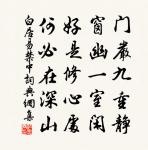 门严九重静
窗幽一室闲
好是修心处
何必在深山
白居易禁中词典網集